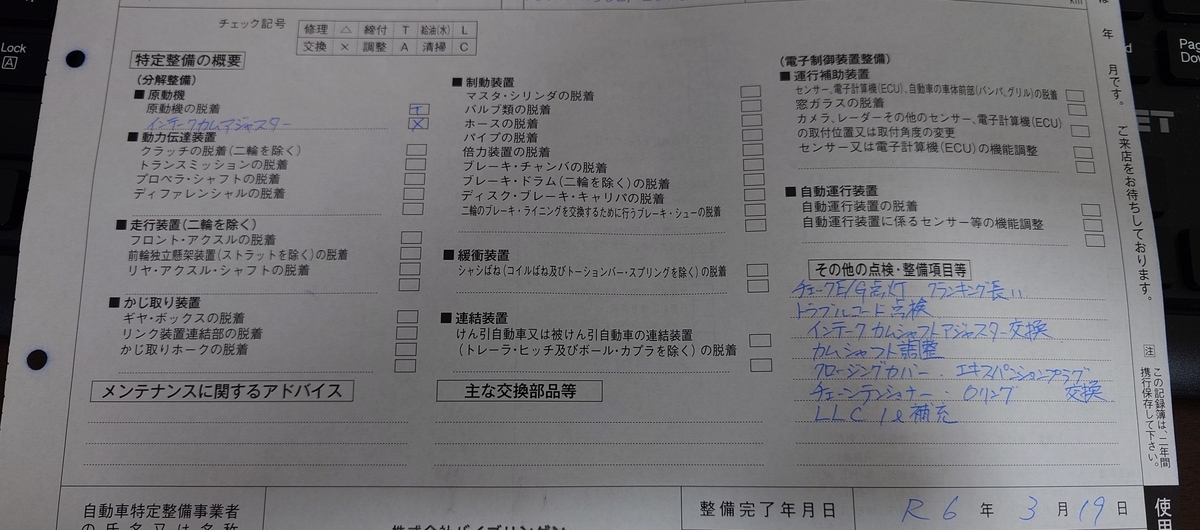 チェック記号
修理 △ 締付 T 給油(水) L
交換 × 調整 A 清掃 C
特定整備の概要
(分解整備)
■ 原動機
原動機の脱着 T
インテークカムアジャスター X
■ 動力伝達装置
クラッチの脱着(二輪を除く)
トランスミッションの脱着
プロペラ・シャフトの脱着
ディファレンシャルの脱着
■ 走行装置(二輪を除く)
フロント・アクスルの脱着
前輪独立懸架装置(ストラットを除く)の脱着
リヤ・アクスル・シャフトの脱着
■ かじ取り装置
ギヤ・ボックスの脱着
リンク装置連結部の脱着
かじ取りホークの脱着
メンテナンスに関するアドバイス
■ 制動装置
マスタ・シリンダの脱着
バルブ類の脱着
ホースの脱着
パイプの脱着
倍力装置の脱着
ブレーキ・チャンバの脱着
ブレーキ・ドラム(二輪を除く)の脱着
ディスク・ブレーキ・キャリパの脱着
二輪のブレーキ・ライニングを交換するために行うブレーキ・シューの脱着
■ 緩衝装置
シャシばね(コイルばね及びトーションバー・スプリングを除く)の脱着
■ 連結装置
けん引自動車又は被けん引自動車の連結装置
(トレーラ・ヒッチ及びボール・カプラを除く)の脱着
主な交換部品等
(電子制御装置整備)
■ 運行補助装置
センサー、電子計算機(ECU)、自動車の車体前部(バンパ、グリル)の脱着
窓ガラスの脱着
カメラ、レーダーその他のセンサー、電子計算機(ECU)
の取付位置又は取付角度の変更
センサー又は電子計算機(ECU)の機能調整
■ 自動運行装置
自動運行装置の脱着
自動運行装置に係るセンサー等の機能調整
その他の点検・整備項目等
チェックE/G点灯 クランキング長い
トラブルコード点検
インテークカムシャフトアジャスター交換
カムシャフト調整
クロージングカバー・エキスパンションプラグ
チェーンテンショナー・Oリング 交換
LLC 1ℓ補充
自動車特定整備事業者
の氏名又は名称
整備完了年月日
R6 年 3 月 19 日
年 月です。 ご来店をお待ちしております。
注 この記録簿は、二年間
携行保存して下さい。
使用
Lock
A